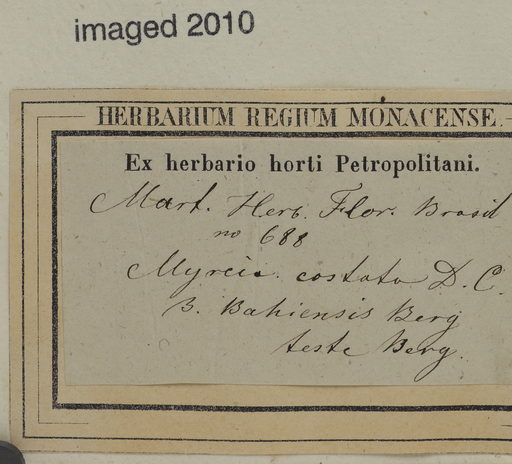 imaged 2010
HERBARIUM REGIUM MONACENSE.
Ex herbario horti Petropolitani.
Mart. Herb. Flor. Brasil
no 688
Myrcia costata D. C.
B. Bahiensis Berg
teste Berg.